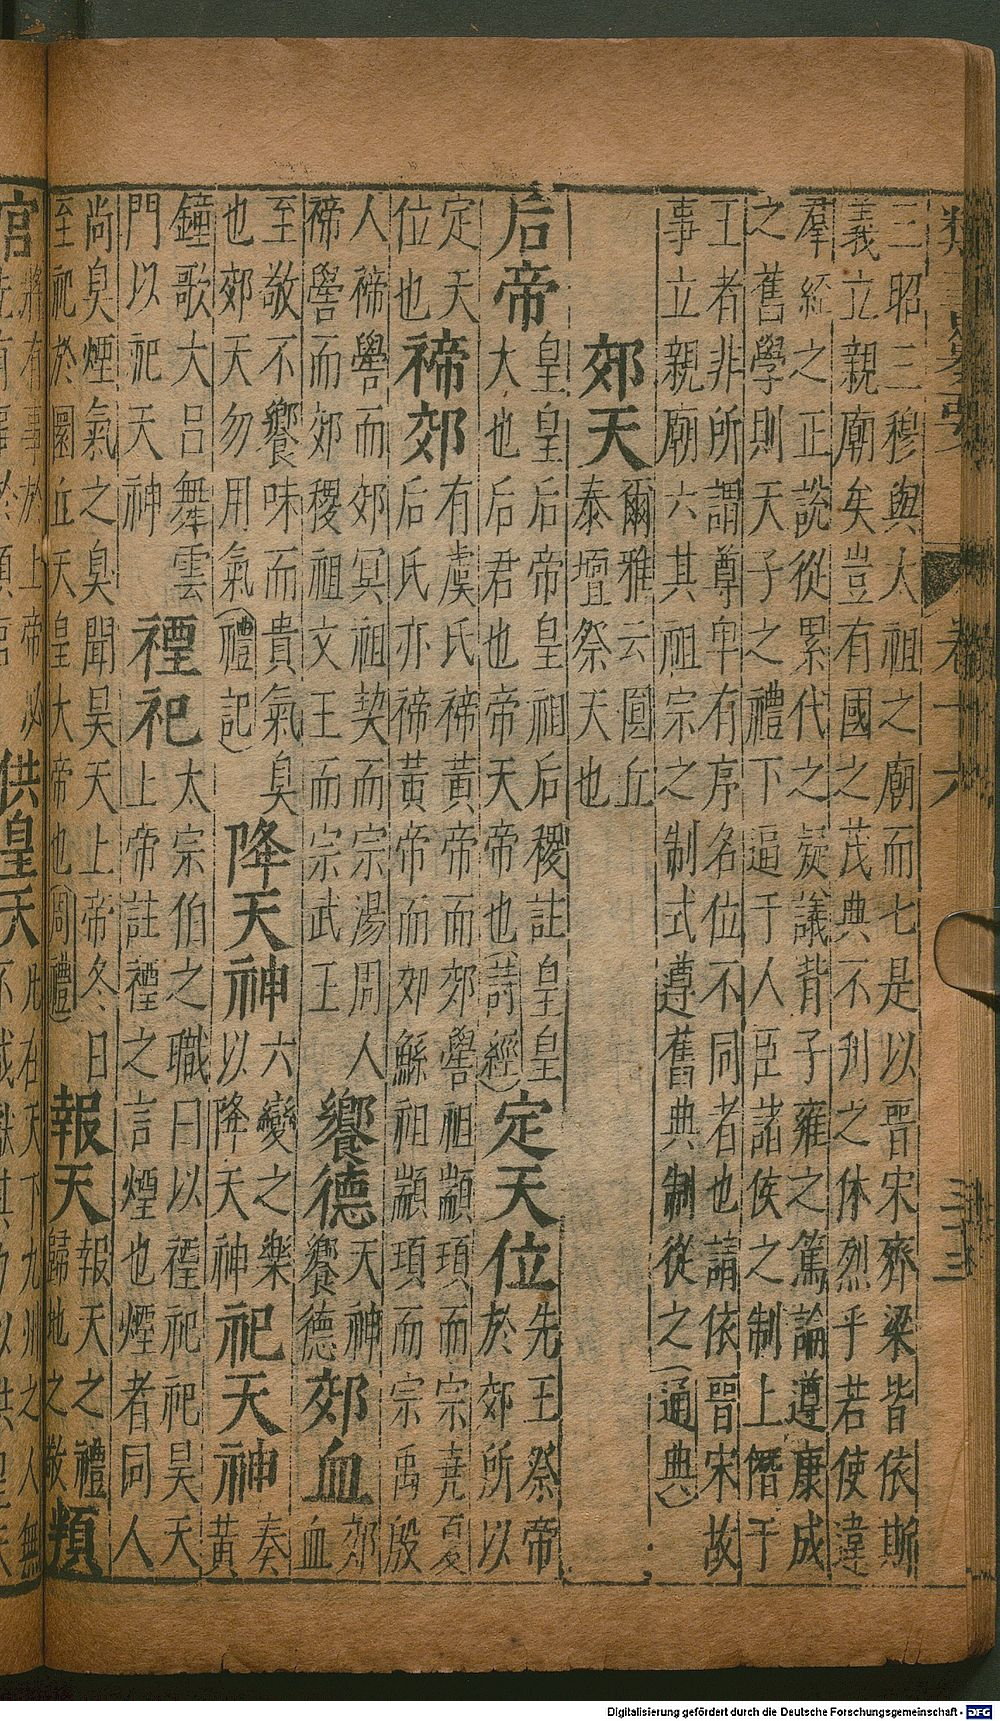 卷十六
三十三
三昭三穆與大祖之廟而七是以晋宋齊梁皆依斯
義立親廟矣豈有國之茂典不刋之休烈乎若使違
羣經之正說從累代之疑議背子雍之篤論遵康成
之舊學則天子之禮下逼于人臣諸侯之制上僭于
王者非所謂尊卑有序名位不同者也請依晋宋故
事立親廟六其祖宗之制式遵舊典制從之(通典)
郊天
爾雅云圓丘
泰壇祭天也
后帝
皇皇后帝皇祖后稷註皇皇
大也后君也帝天帝也(詩經)
定天位
先王祭帝
於郊所以
定天
位也
禘郊
有虞氏禘黃帝而郊嚳祖顓頊而宗堯夏
后氏亦禘黃帝而郊鯀祖顓頊而宗禹殷
人禘嚳而郊冥祖契而宗湯周人
禘嚳而郊稷祖文王而宗武王
饗德
天神
饗德
郊血
郊
血
至敬不饗味而貴氣臭
也郊天勿用氣(禮記)
降天神
六變之樂
以降天神
祀天神
奏
黃
鐘歌大呂舞雲
門以祀天神
禋祀
太宗伯之職曰以禋祀祀昊天
上帝註禋之言煙也煙者同人
尚臭煙氣之臭聞昊天上帝冬日
至祀於圜丘天皇大帝也(周禮)
報天
報天之禮
歸地之敬
類
宮
將有事於上帝必
供皇天
凡在天下九州之人無